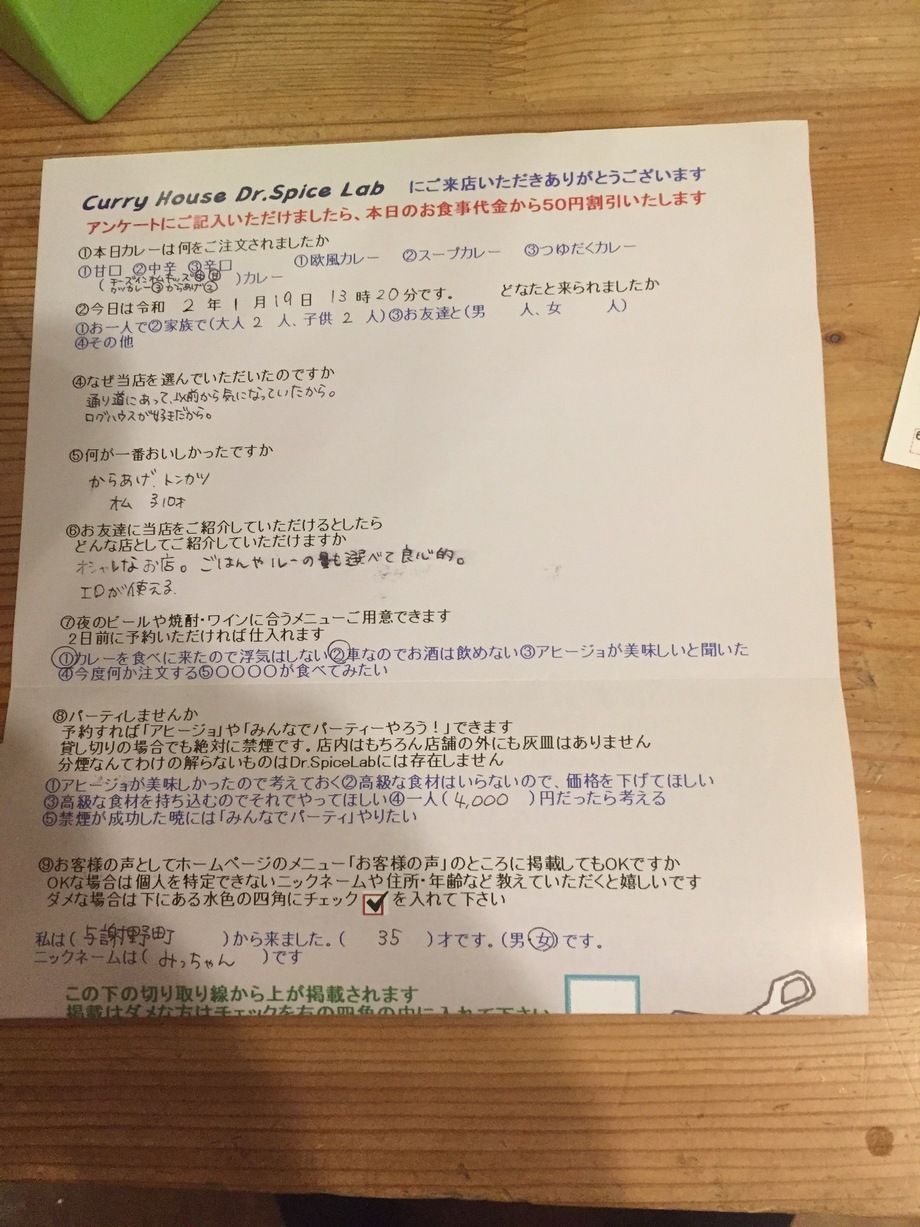 Curry House Dr.Spice Lab にご来店いただきありがとうございます
アンケートにご記入いただけましたら、本日のお食事代金から50円割引いたします
①本日カレーは何をご注文されましたか
①甘口 ②中辛 ③辛口 ①欧風カレー ②スープカレー ③つゆだくカレー
(チーズインオムキッズ
カツカレー③からあげ②)カレー
②今日は令和 2 年 1 月 19 日 13 時 20 分です。 どなたと来られましたか
①お一人で②家族で(大人 2 人、子供 2 人)③お友達と(男 人、女 人)
④その他
④なぜ当店を選んでいただいたのですか
通り道にあって、以前から気になっていたから。
ログハウスが好きだから。
⑤何が一番おいしかったですか
からあげ、トンカツ
オム
⑥お友達に当店をご紹介していただけるとしたら
どんな店としてご紹介していただけますか
オシャレなお店。ごはんやルーの量も選べて良心的。
IDが使える
⑦夜のビールや焼酎・ワインに合うメニューご用意できます
2日前に予約いただければ仕入れます
①カレーを食べに来たので浮気はしない②車なのでお酒は飲めない③アヒージョが美味しいと聞いた
④今度何か注文する⑤〇〇〇〇が食べてみたい
⑧パーティしませんか
予約すれば「アヒージョ」や「みんなでパーティーやろう!」できます
貸し切りの場合でも絶対に禁煙です。店内はもちろん店舗の外にも灰皿はありません
分煙なんてわけの解らないものはDr.SpiceLabには存在しません
①アヒージョが美味しかったので考えておく②高級な食材はいらないので、価格を下げてほしい
③高級な食材を持ち込むのでそれでやってほしい④一人(4,000)円だったら考える
⑤禁煙が成功した暁には「みんなでパーティ」やりたい
⑨お客様の声としてホームページのメニュー「お客様の声」のところに掲載してもOKですか
OKな場合は個人を特定できないニックネームや住所・年齢など教えていただくと嬉しいです
ダメな場合は下にある水色の四角にチェック を入れて下さい
私は(与謝野町)から来ました。(35)才です。(男・女)です。
ニックネームは(みっちゃん)です
この下の切り取り線から上が掲載されます
掲載はダメな方はチェックを右の四角の中に入れて下さい